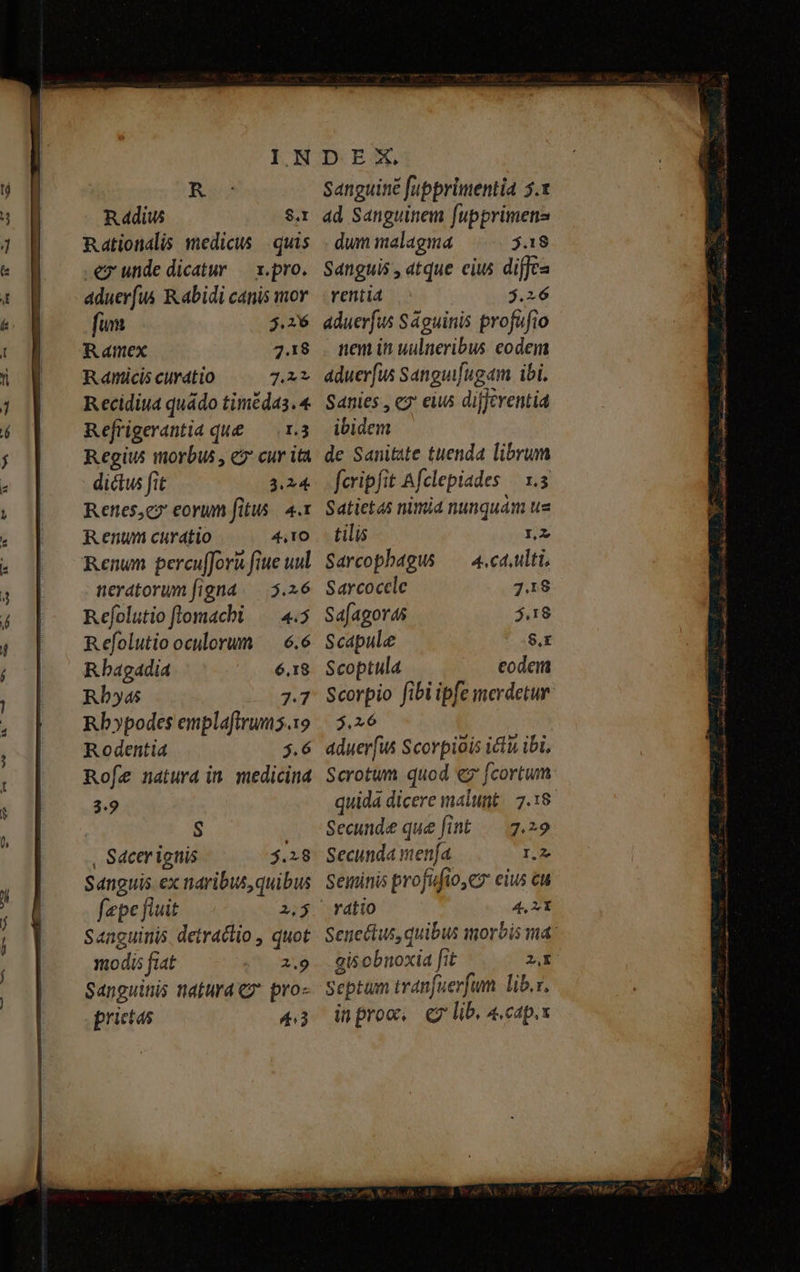 INDEX.
R
Radius 8.1
Rationalis medicus quis
& unde dicatur 1.pro.
aduerſus Rabidi canis mor
ſum 5.26
Ramex 7.18
Ramicis curatio 7.22
Recidiua quãdo timẽda 3.4
Refrigerantia quæ 1.3
Regius morbus, & cur ita
dictus ſit 3.24
Renes, & eorum ſitus 4.1
Renum curatio 4.10
Renum percuſſorũ ſiue uul
neratorum ſigna 5.26
Reſolutio ſtomachi 4.5
Reſolutio oculorum 6.6
Rhagadia 6.18
Rhyas 7.7
Rhypodes emplaſtrum 5.19
Rodentia 5.6
Roſæ natura in medicina
3.9
S
Sacer ignis 5.28
Sanguis ex naribus, quibus
ſæpe fluit 2.5
Sanguinis detractio, quot
modis fiat 2.9
Sanguinis natura & pro=
prietas 4.3
Sanguinẽ ſupprimentia 5.1
ad Sanguinem ſupprimen=
dum malagma 5.18
Sanguis, atque eius diffe=
rentia 5.26
aduerſus Sãguinis profuſio
nem in uulneribus eodem
aduerſus Sanguiſugam ibi.
Sanies, & eius differentia
ibidem
de Sanitate tuenda librum
ſcripſit Aſclepiades 1.3
Satietas nimia nunquàm u=
tilis 1.2
Sarcophagus 4.ca.ulti.
Sarcocele 7.18
Saſagoras 5.18
Scapulæ 8.1
Scoptula eodem
Scorpio ſibi ipſe merdetur
5.26
aduerſus Scorpiõis ictũ ibi.
Scrotum quod & ſcortum
quidã dicere malunt 7.18
Secundæ quæ ſint 7.29
Secunda menſa 1.2
Seminis profuſio, & eius cu
ratio 4.21
Senectus, quibus morbis ma
gis obnoxia ſit 2.1
Septum tranſuerſum lib.1.
in proœ. & lib. 4.cap.1